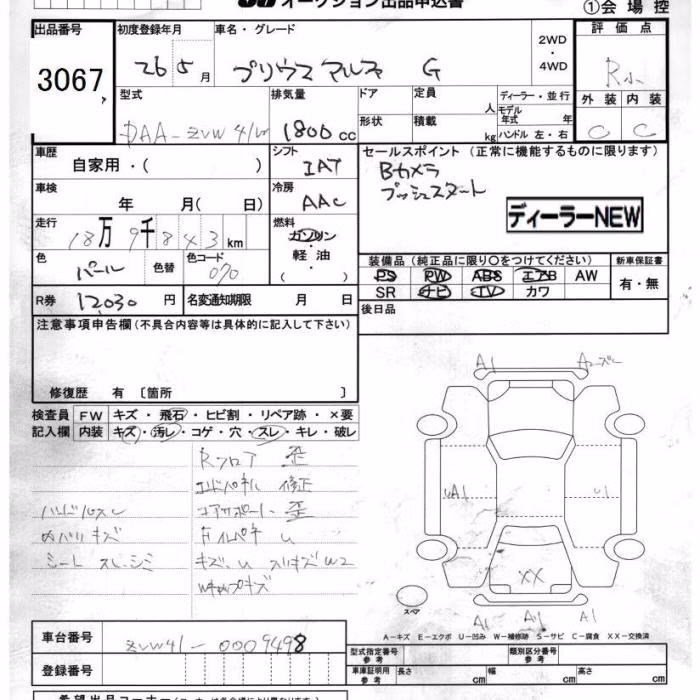 オークション出品申込書
①会場控
出品番号 初度登録年月 車名・グレード 評価点
3067 26 5月 プリウスアルファ G 2WD・4WD R
型式 排気量 ドア 定員 人 ディーラー・並行 外装 内装
DAA-ZVW41W 1800cc 形状 積載 kg モデル年式 年 ハンドル 左・右 C C
車歴 自家用・( ) シフト IAT セールスポイント (正常に機能するものに限ります)
Bカメラ
プッシュスタート
車検 年 月( 日) 冷房 AAC
ディーラーNEW
走行 18万9千843km 燃料 ガソリン・軽油・( )
装備品 (純正品に限り○をつけてください) 新車保証書
色 パール 色替 色コード 070
PS PW ABS エアB AW 有・無
SR ナビ TV カワ
R券 12030円 名変通知期限 月 日
後日品
注意事項申告欄 (不具合内容等は具体的に記入して下さい)
修復歴 有 〔箇所 〕
検査員記入欄 FW キズ・飛石・ヒビ割・リペア跡・×要
内装 キズ・汚レ・コゲ・穴・スレ・キレ・破レ
Rフロア 歪
エンドパネル 修正
ハンドルスレ コアサポート 歪
内バリキズ
シートスレ、シミ キズ、U スリキズW2
A1 A1
UA1 U1
XX
A1 A1 A1
スペア
A-キズ E-エクボ U-凹み W-補修跡 S-サビ C-腐食 XX-交換済
車台番号 ZVW41-0009498
型式指定番号 参考 類別区分番号 参考
登録番号
車庫証明用 参考 長さ cm 幅 cm 高さ cm
希望出品コーナー